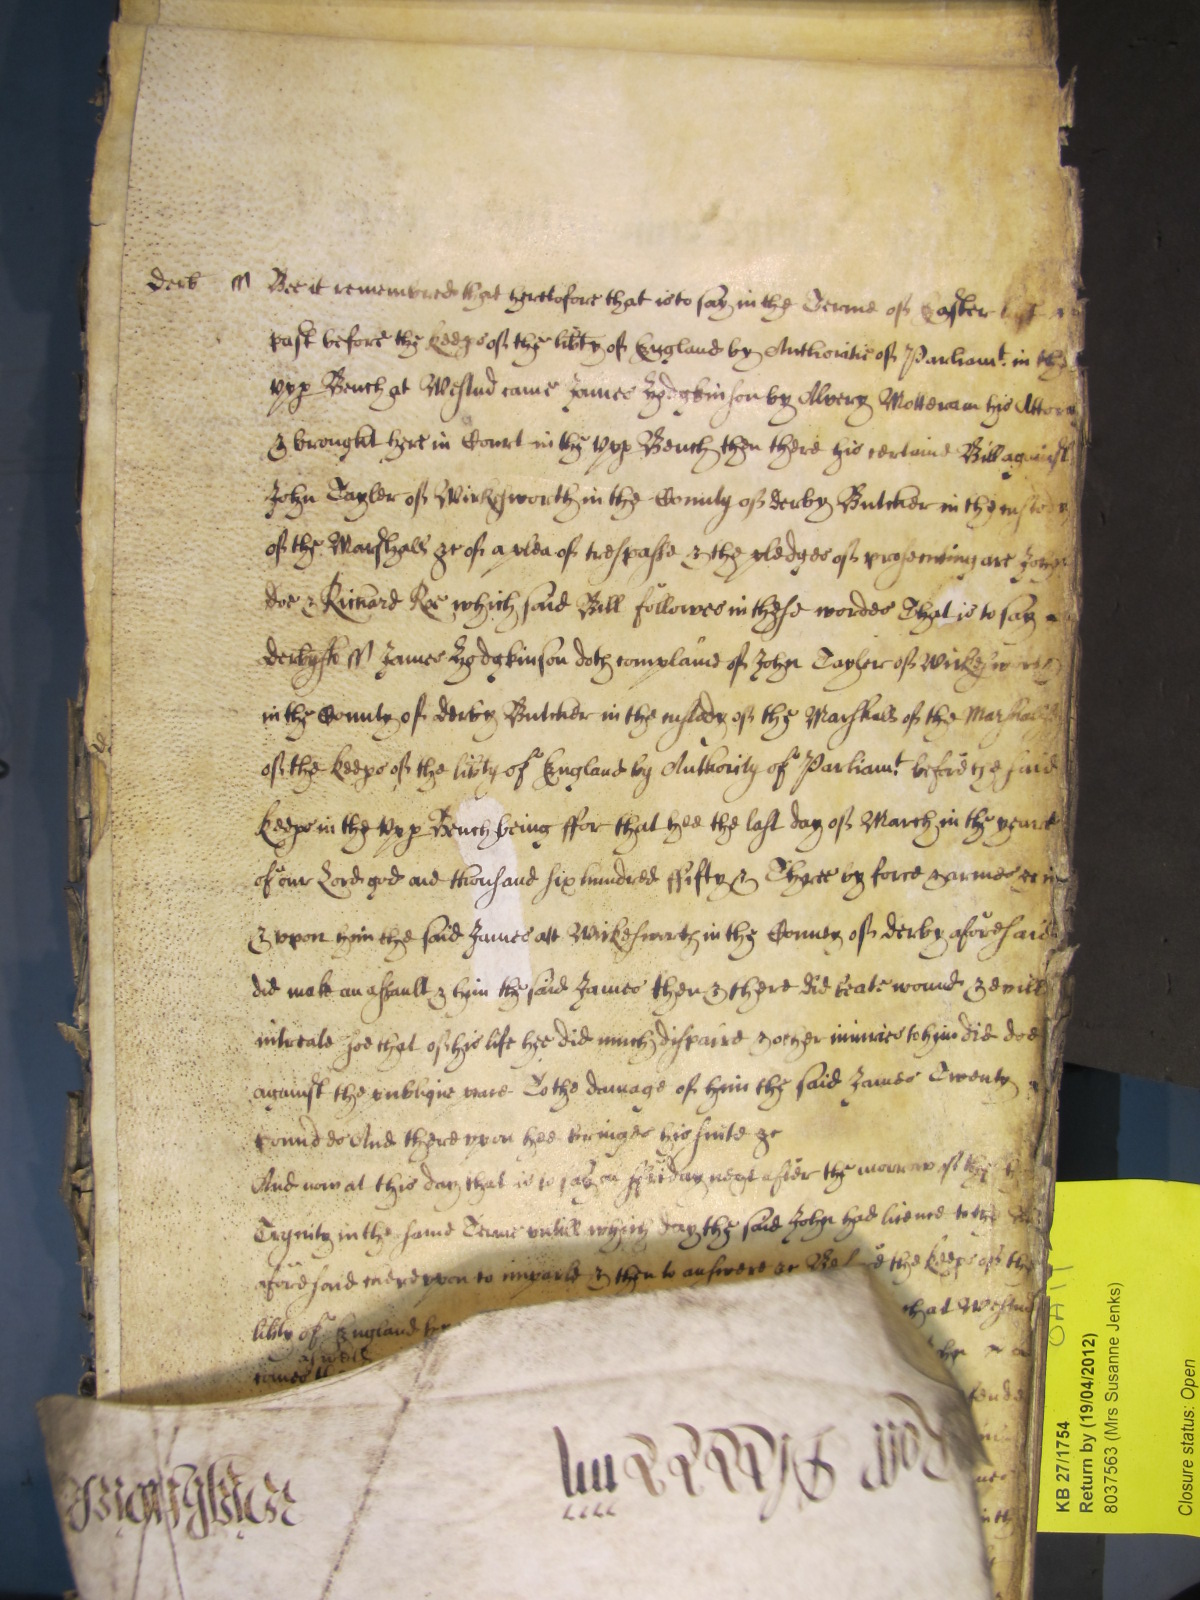 Derb ss Bee it remembred that heretofore that is to say in the Terme of Easter last
past before the keeps of the libty of England by Authoritie of Parliamt. in the
vpp Bench at Westm̃ came James Hodgkinson by Alvery Motteram his Attorn
& brought here in Court in the vpp Bench then there his certaine Bill against
John Tayler of Wirksworth in the County of derby Butcher in the custody
of the Marshall &c of a plea of trespasse & the pledges of prosecuting are John
doe & Richard Roe which said Bill followes in these wordes That is to say
derbysh ss James Hodgkinson doth complaine of John Tayler of Wirksworth
in the County of derby Butcher in the custody of the Marshall of the Marshallsey
of the keeps of the libty of England by Authority of Parliamt. before the said
keeps in the vpp Bench being ffor that hee the last day of March in the yeare
of our Lord god one thousand six hundred ffifty & Three by force & armes &c in
& vpon him the said James att Wirkesworth in the County of derby aforesaid
did make an assault & him the said James then & there did beate wound & evill
intreate soe that of his life hee did much dispaire & other iniuries to him did doe
against the publique peace To the damage of him the said James Twenty
pounds And there vpon hee bringes his suite &c
And now at this day that is to say on ffriday next after the morrow of the holy
Trynity in the same Terme vntill which day the said John had licence to the Bill
aforesaid therevpon to imparle & then to answere &c Before the keeps of the
libty of England by
that Westm̃
as well
comes th
Roll
KB 27/1754
Return by (19/04/2012)
8037563 (Mrs Susanne Jenks)
Closure status: Open